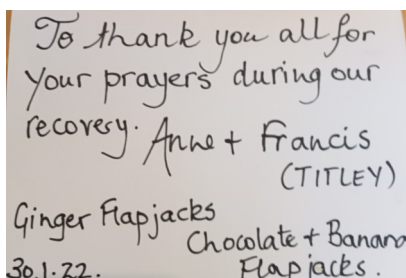 To thank you all for
your prayers during our
recovery. Anne + Francis
(TITLEY)
Ginger Flapjacks
Chocolate + Banana
30.1.22. Flapjacks.